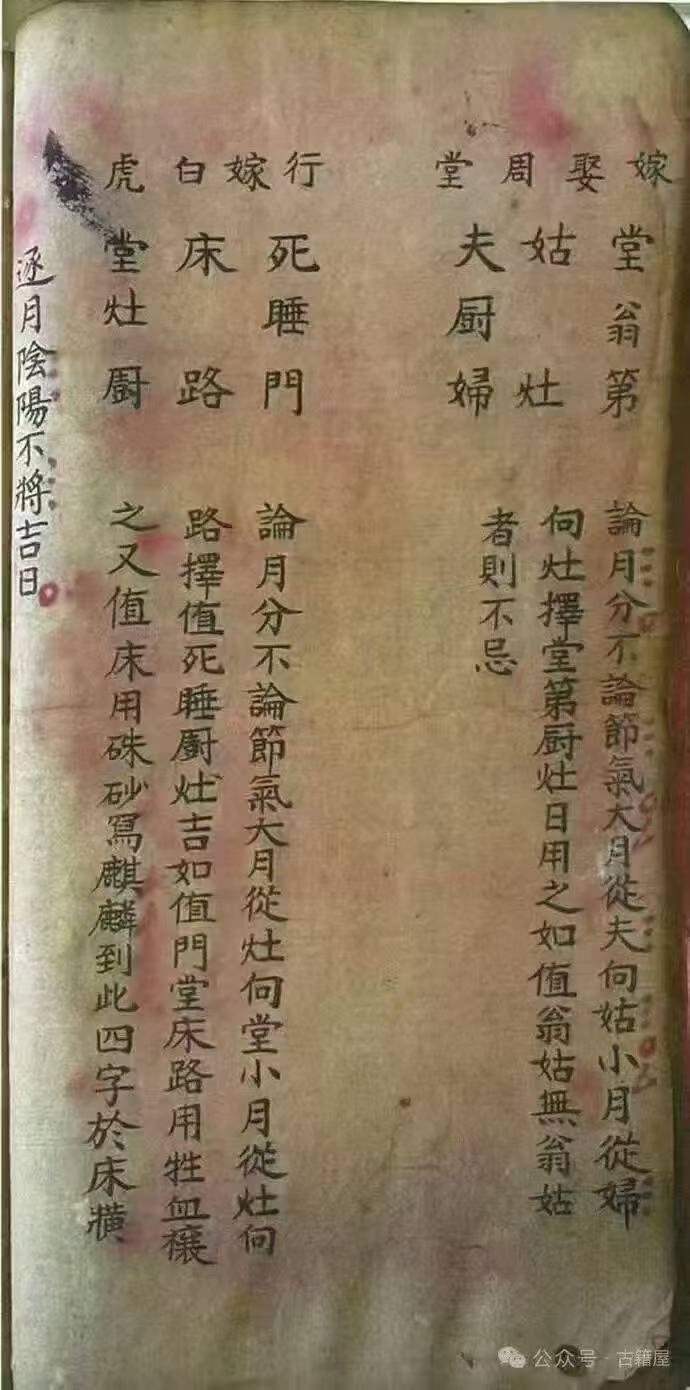 嫁娶周堂
堂翁第
姑　灶
夫厨婦
論月分不論節氣大月從夫向姑小月從婦
向灶擇堂第厨灶日用之如值翁姑無翁姑
者則不忌
行嫁白虎
死睡門
床　路
堂灶厨
論月分不論節氣大月從灶向堂小月從灶向
路擇值死睡厨灶吉如值門堂床路用牲血禳
之又值床用硃砂寫麒麟到此四字於床横
逐月陰陽不將吉日
公众号·古籍屋